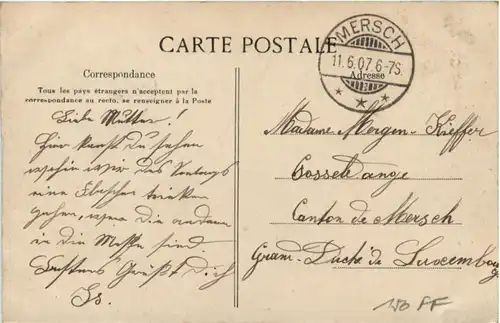 CARTE POSTALE
MERSCH
11.6.07. 6-7S.
Correspondance
Adresse
Tous les pays étrangers n'acceptent par la
correspondance au recto, se renseigner à la Poste
Liebe Mutter!
Hier kanst Du sehen
wohin wir des Sontags
eine Flasche trinken
gehen, wenn die andern
in die Messe sind.
Bestens Grüßt Dich
Js.
Madame Morgen-Kieffer
Bossetange
Canton de Mersch
Grand-Duché de Luxembourg
150 FF